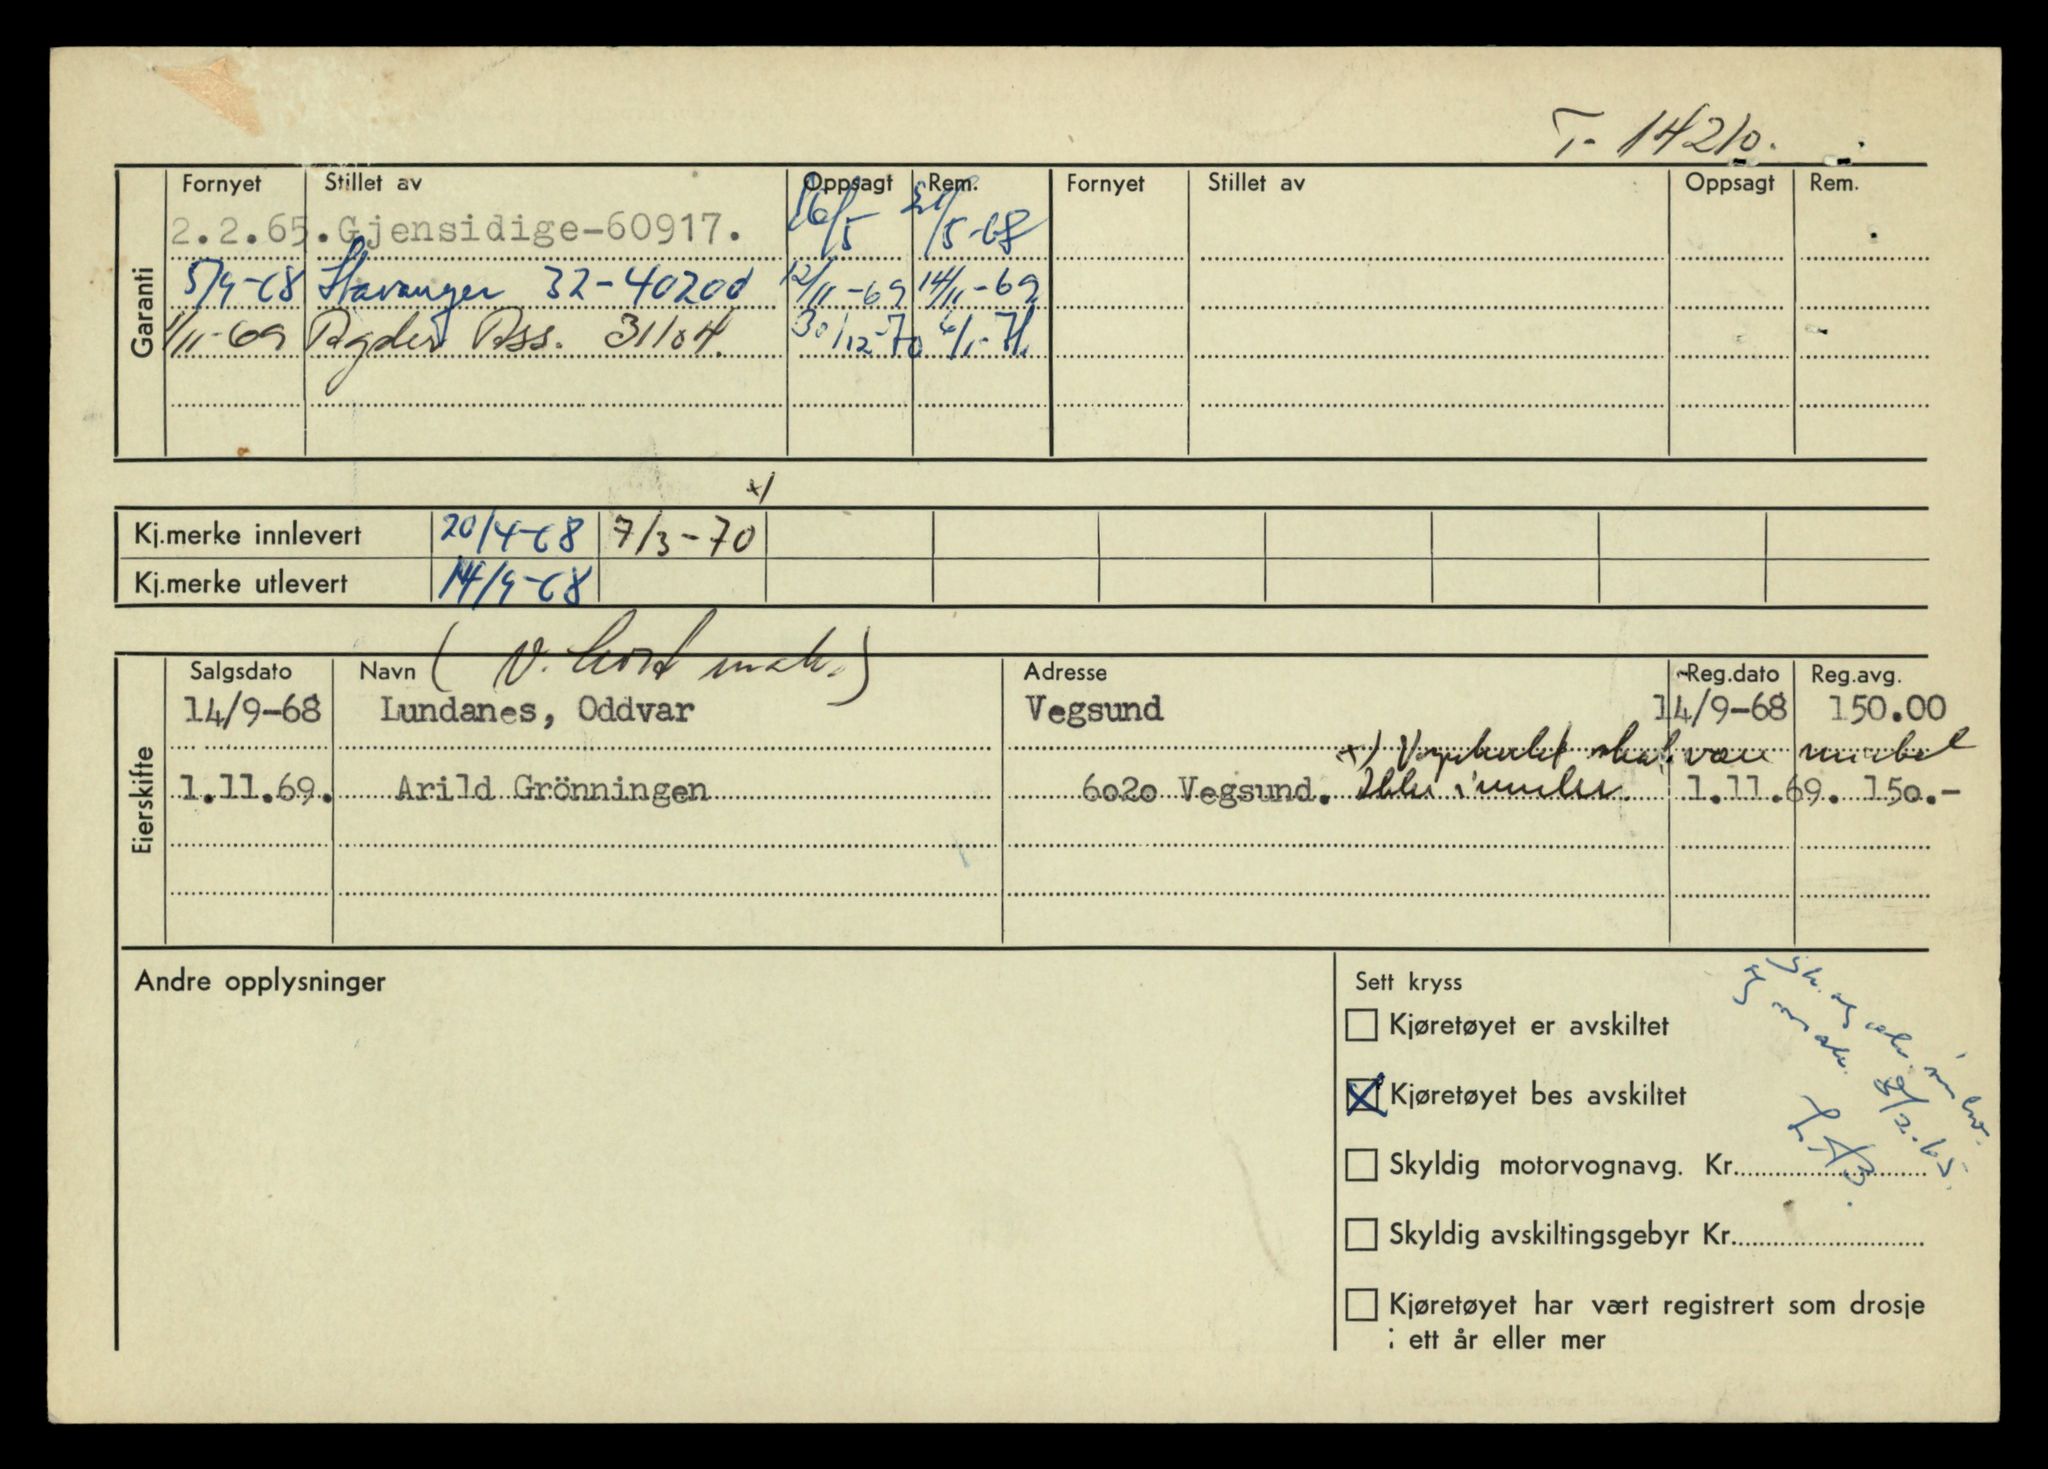 T- 14210.
Garanti
Fornyet Stillet av Oppsagt Rem. Fornyet Stillet av Oppsagt Rem.
2.2.65. Gjensidige-60917. 16/5 /5-68
5/9-68 Stavanger 32-40200 12/11-69 14/11-69
1/11-69 Agder Ass. 31104. 30/12-70 6/1-71.
x/
Kj.merke innlevert 20/4-68 7/3-70
Kj.merke utlevert 14/9-68
(V. kort mak.)
Eierskifte
Salgsdato Navn Adresse Reg.dato Reg.avg.
14/9-68 Lundanes, Oddvar Vegsund 14/9-68 150.00
x) Vognkortet skal være
1.11.69. Arild Grönningen 6020 Vegsund. Ikke 1.11.69. 150.-
Andre opplysninger
Sett kryss
Kjøretøyet er avskiltet
Kjøretøyet bes avskiltet
Skyldig motorvognavg. Kr.
Skyldig avskiltingsgebyr Kr.
Kjøretøyet har vært registrert som drosje
i ett år eller mer